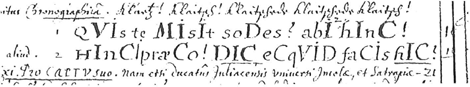 Chronographica. Klaitz! Klaitsch! Klaitschode Klaitschode Klaitsch!
1 QVIs te MIsIt soDes? abI hInC!
aliud. 2 HInC I præCo! DIC eCqVID faCIs hIC!
xi. Pro CAPTV suo. Nam etsi ducatus Juliacensis universi Incolæ, et Satrapiæ